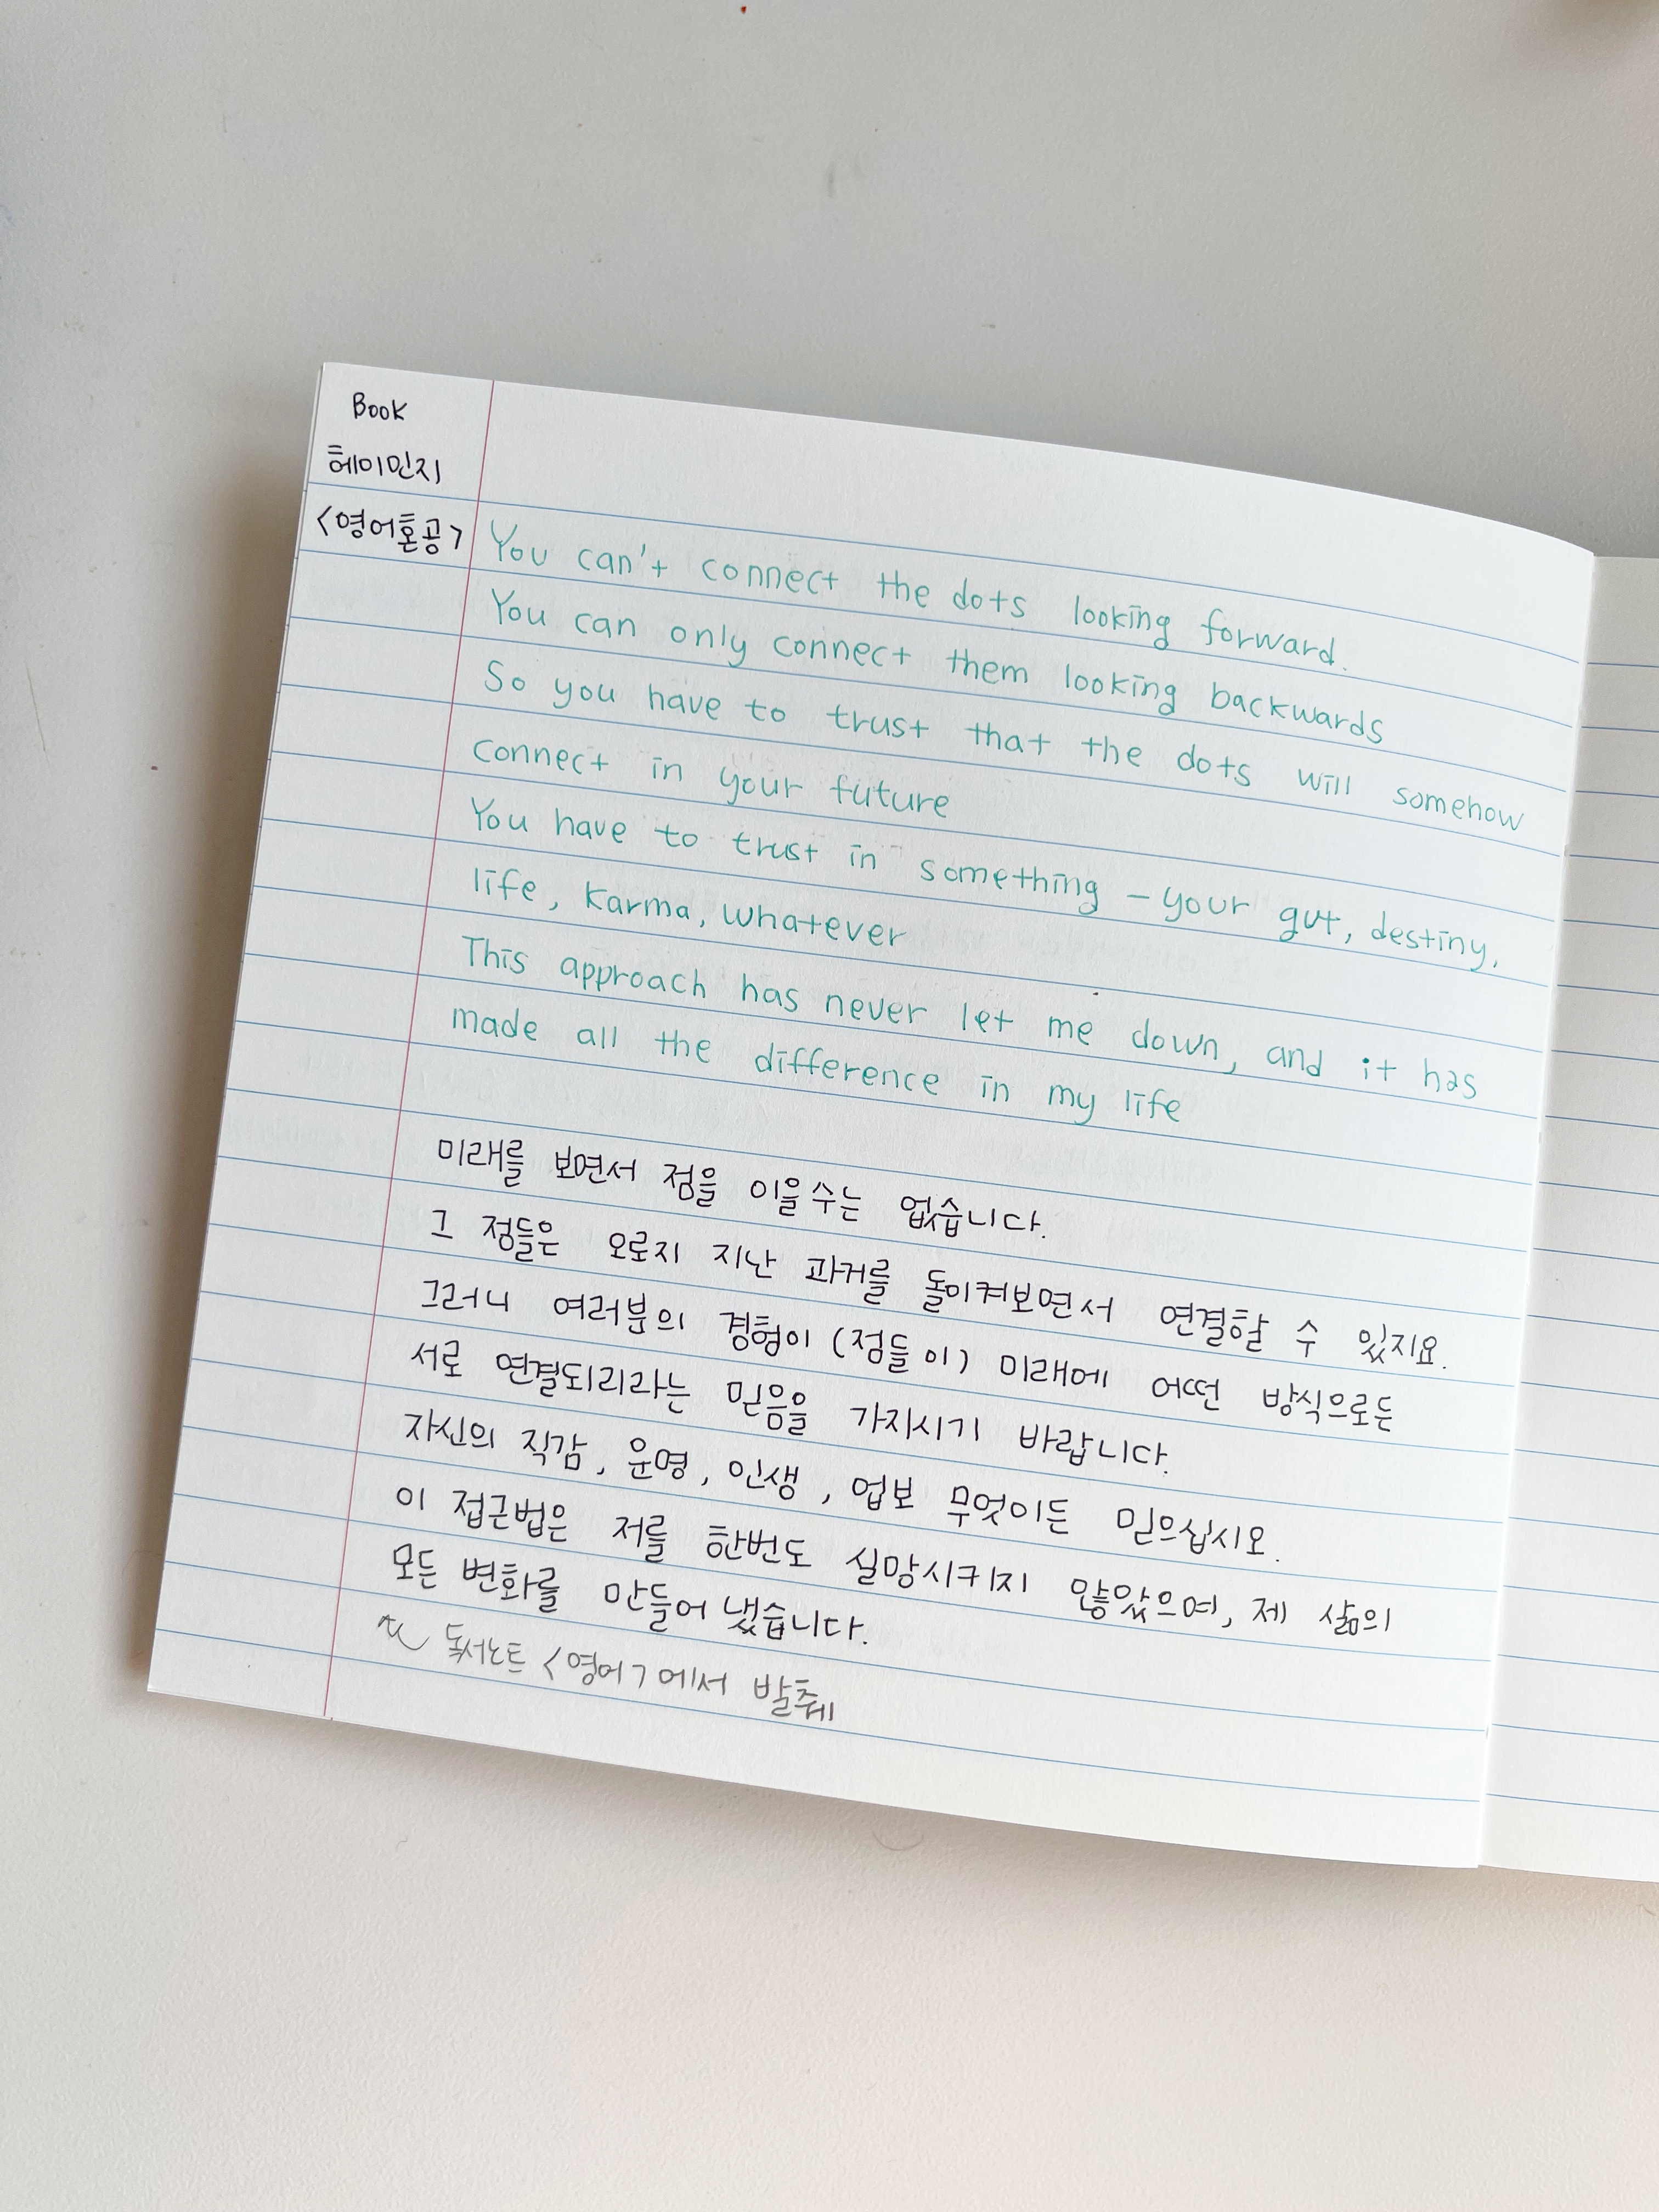 Book
헤이민지
<영어혼공>
You can't connect the dots looking forward.
You can only connect them looking backwards
So you have to trust that the dots will somehow
connect in your future
You have to trust in something - your gut, destiny,
life, karma, whatever
This approach has never let me down, and it has
made all the difference in my life
미래를 보면서 점을 이을 수는 없습니다.
그 점들은 오로지 지난 과거를 돌이켜보면서 연결할 수 있지요.
그러니 여러분의 경험이 (점들이) 미래에 어떤 방식으로든
서로 연결되리라는 믿음을 가지시기 바랍니다.
자신의 직감, 운명, 인생, 업보 무엇이든 믿으십시오.
이 접근법은 저를 한번도 실망시키지 않았으며, 제 삶의
모든 변화를 만들어 냈습니다.
독서노트 <영어>에서 발췌